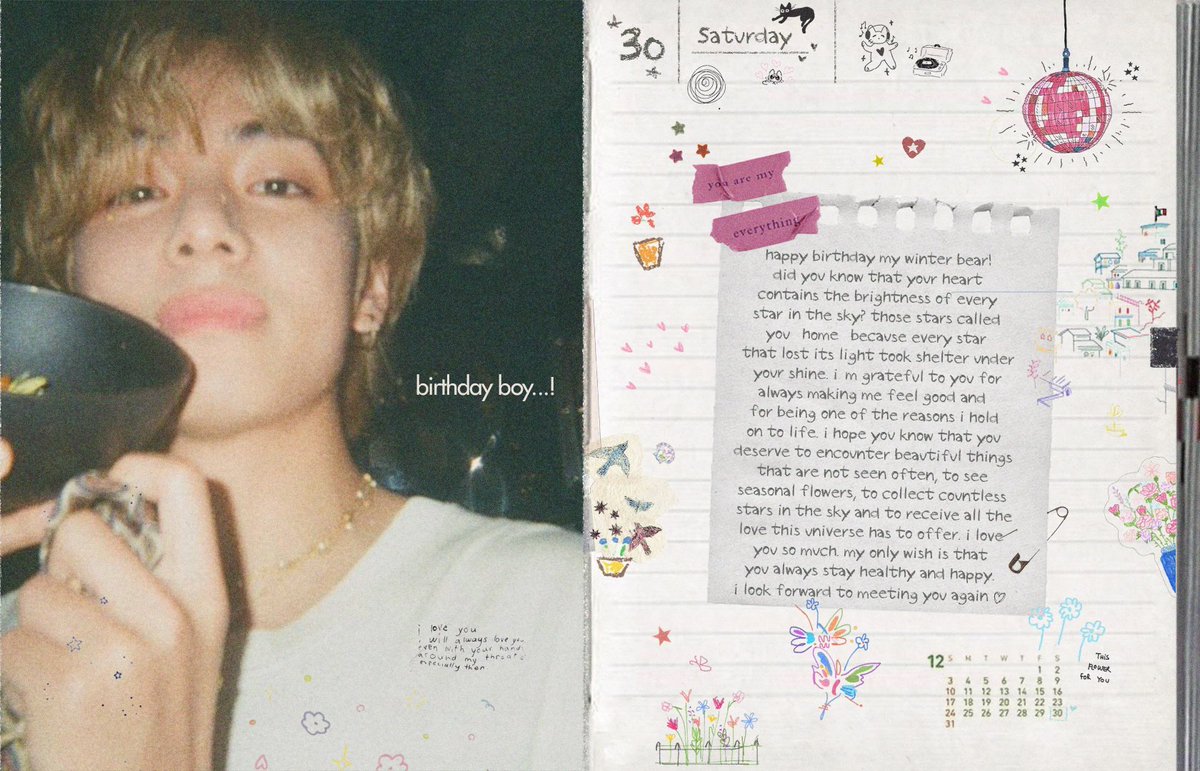 birthday boy...!
i love you
i will always love you
even with your hands
around my throat
especially then
30
Saturday
you are my
everything
happy birthday my winter bear!
did you know that your heart
contains the brightness of every
star in the sky? those stars called
you home because every star
that lost its light took shelter under
your shine. i m grateful to you for
always making me feel good and
for being one of the reasons i hold
on to life. i hope you know that you
deserve to encounter beautiful things
that are not seen often, to see
seasonal flowers, to collect countless
stars in the sky and to receive all the
love this universe has to offer. i love
you so much. my only wish is that
you always stay healthy and happy.
i look forward to meeting you again ♡
12 S M T W T F S
1 2
3 4 5 6 7 8 9
10 11 12 13 14 15 16
17 18 19 20 21 22 23
24 25 26 27 28 29 30
31
THIS
FLOWER
FOR YOU